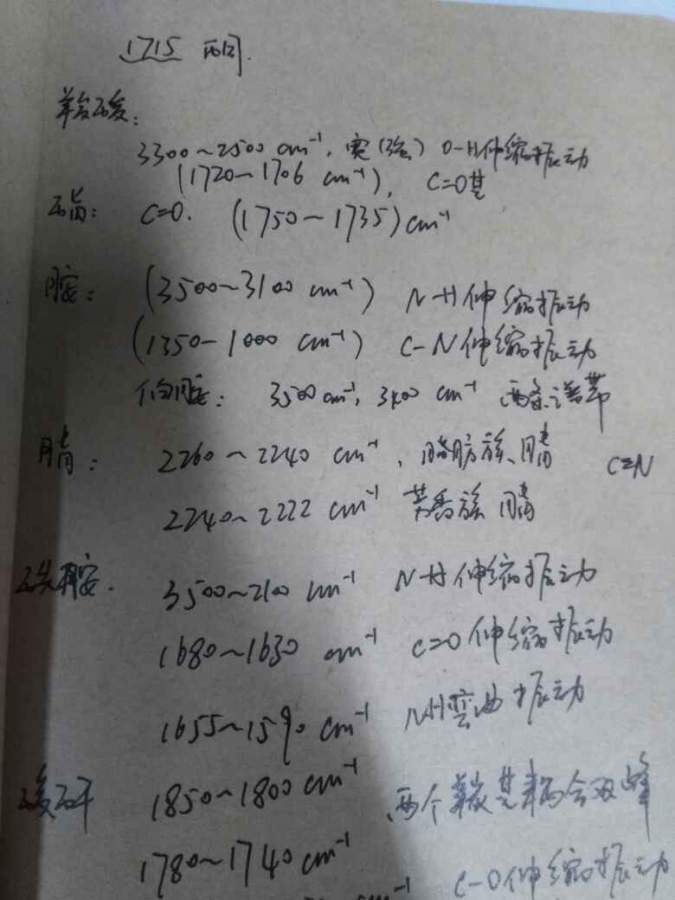 1715 丙酮.
羧酸:
3300~2500 cm⁻¹, 宽(强) O-H伸缩振动
(1720~1706 cm⁻¹), C=O基
酯: C=O. (1750~1735)cm⁻¹
胺: (3500~3100 cm⁻¹) N-H伸缩振动
(1350-1000 cm⁻¹) C-N伸缩振动
伯胺: 3500 cm⁻¹, 3400 cm⁻¹ 两条谱带
腈: 2260~2240 cm⁻¹, 脂肪族腈 C≡N
2240~2222 cm⁻¹ 芳香族腈
酰胺. 3500~2100 cm⁻¹ N-H伸缩振动
1680~1630 cm⁻¹ C=O伸缩振动
1655~1590 cm⁻¹ N-H弯曲振动
酸酐 1850~1800cm⁻¹ 两个羰基耦合双峰
1780~1740cm⁻¹
cm⁻¹ C-O伸缩振动